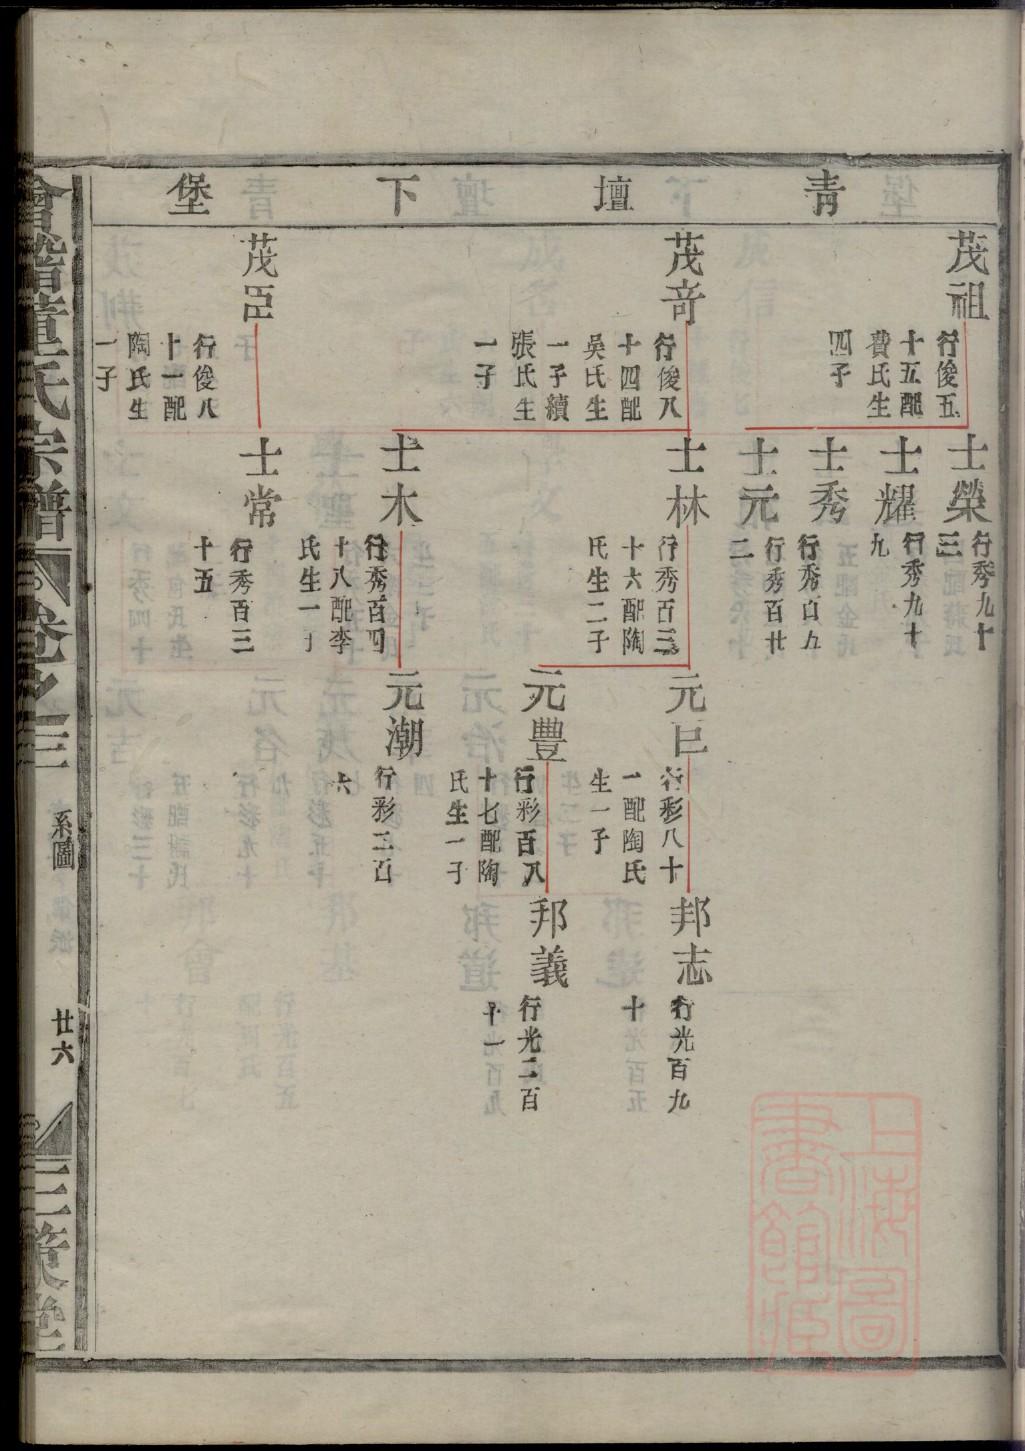 青壇下堡
茂祖
行俊五
十五配
費氏生
四子
茂竒
行俊八
十四配
吳氏生
一子續
張氏生
一子
茂臣
行俊八
十一配
陶氏生
一子
士榮
行秀九十
三
士耀
行秀九十
九
士秀
行秀百五
士元
行秀百廿
二
士林
行秀百三
十六配陶
氏生二子
士木
行秀百四
十八配李
氏生一子
士常
行秀百三
十五
元巨
行彩八十
一配陶氏
生一子
元豐
行彩百八
十七配陶
氏生一子
元潮
行彩二百
六
邦志
行光百九
十
邦義
行光二百
十一
會稽董氏宗譜
卷之三
系圖
廿六
三策堂
上海圖書館藏